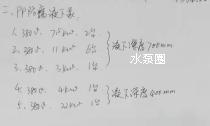 二、PP防腐液下泵
1. 380V. 7.5KW 2台
2. 380V. 11KW 6台
3. 380V. 3KW 1台
液下深度700mm
水泵圈
4. 380V. 4KW 1台
5. 380V. 22KW 1台
液下深度400mm